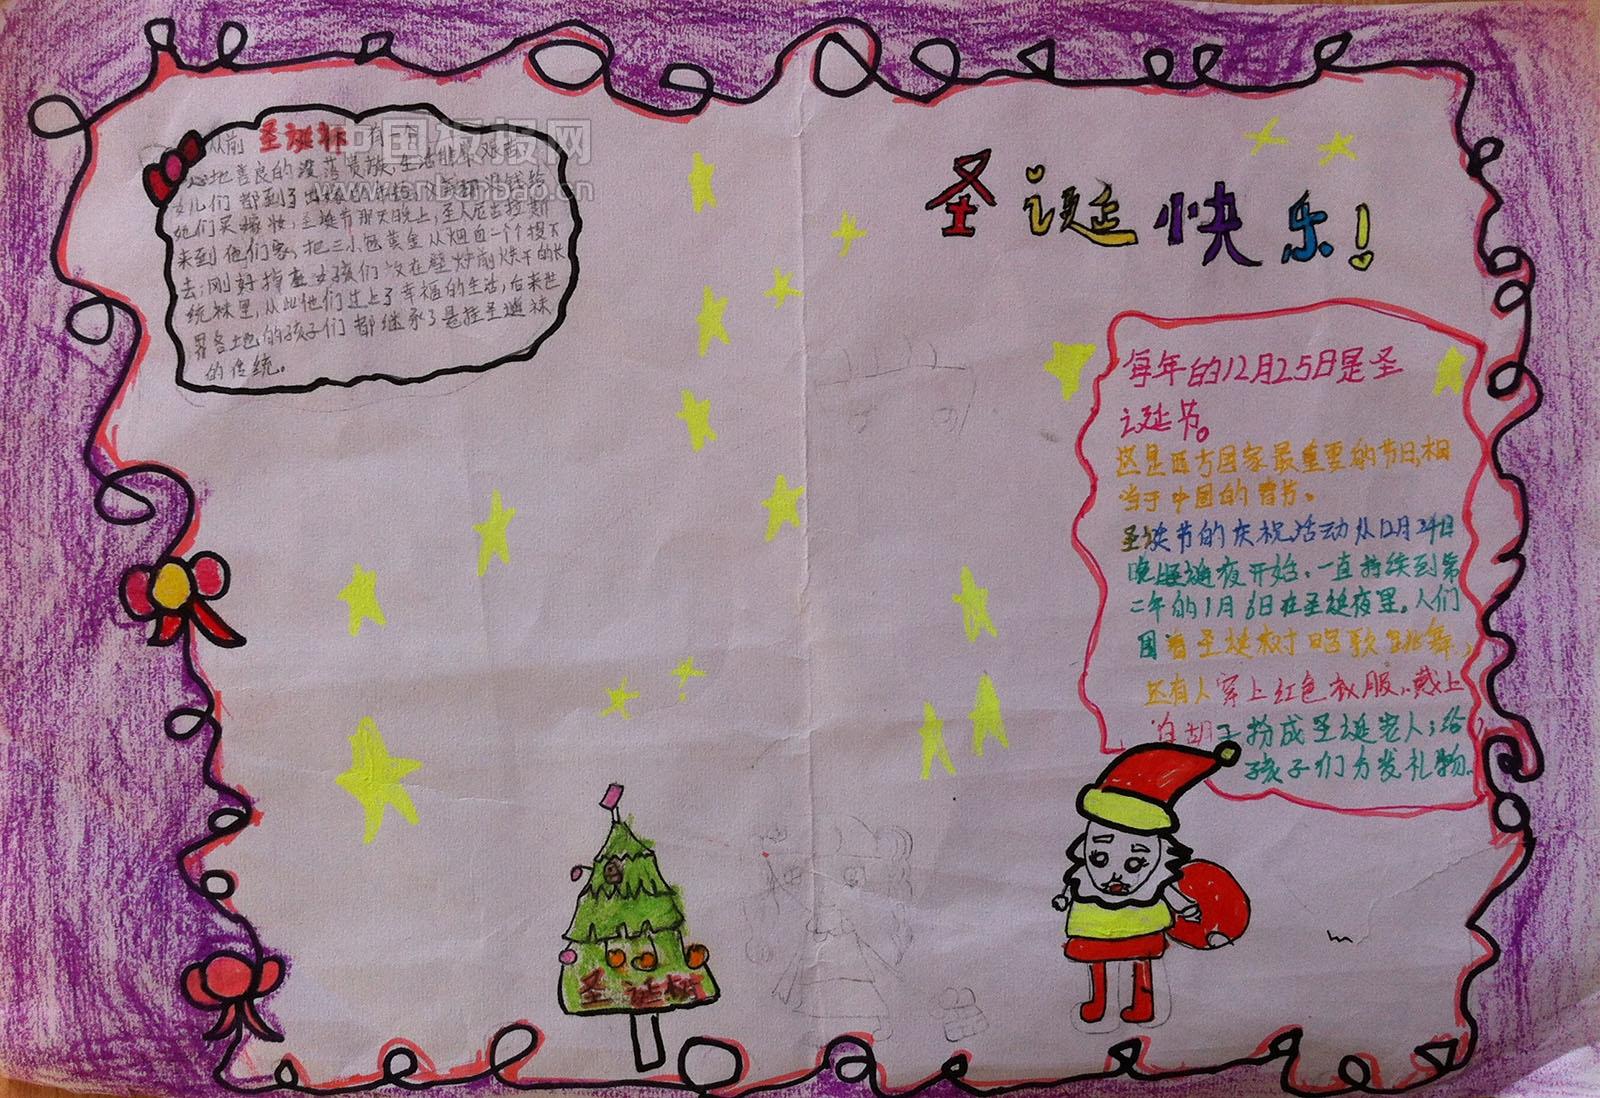 圣诞快乐!
从前 圣诞袜 有一个
心地善良的没落贵族,生活非常艰难
女儿们都到了出嫁的年龄,父亲却没钱给
她们买嫁妆,圣诞节那天晚上,圣人尼古拉斯
来到他们家,把三小包黄金从烟囱一个个投下
去;刚好掉在女孩们放在壁炉前烘干的长
统袜里,从此他们过上了幸福的生活,后来世
界各地的孩子们都继承了悬挂圣诞袜
的传统。
每年的12月25日是圣
诞节。
这是西方国家最重要的节日,相
当于中国的春节。
圣诞节的庆祝活动从12月24日
晚圣诞夜开始,一直持续到第
二年的1月6日在圣诞夜里,人们
围着圣诞树唱歌跳舞,
还有人穿上红色衣服,戴上
白胡子扮成圣诞老人;给
孩子们分发礼物.
圣诞树
中国板报网
www.cnbanbao.cn